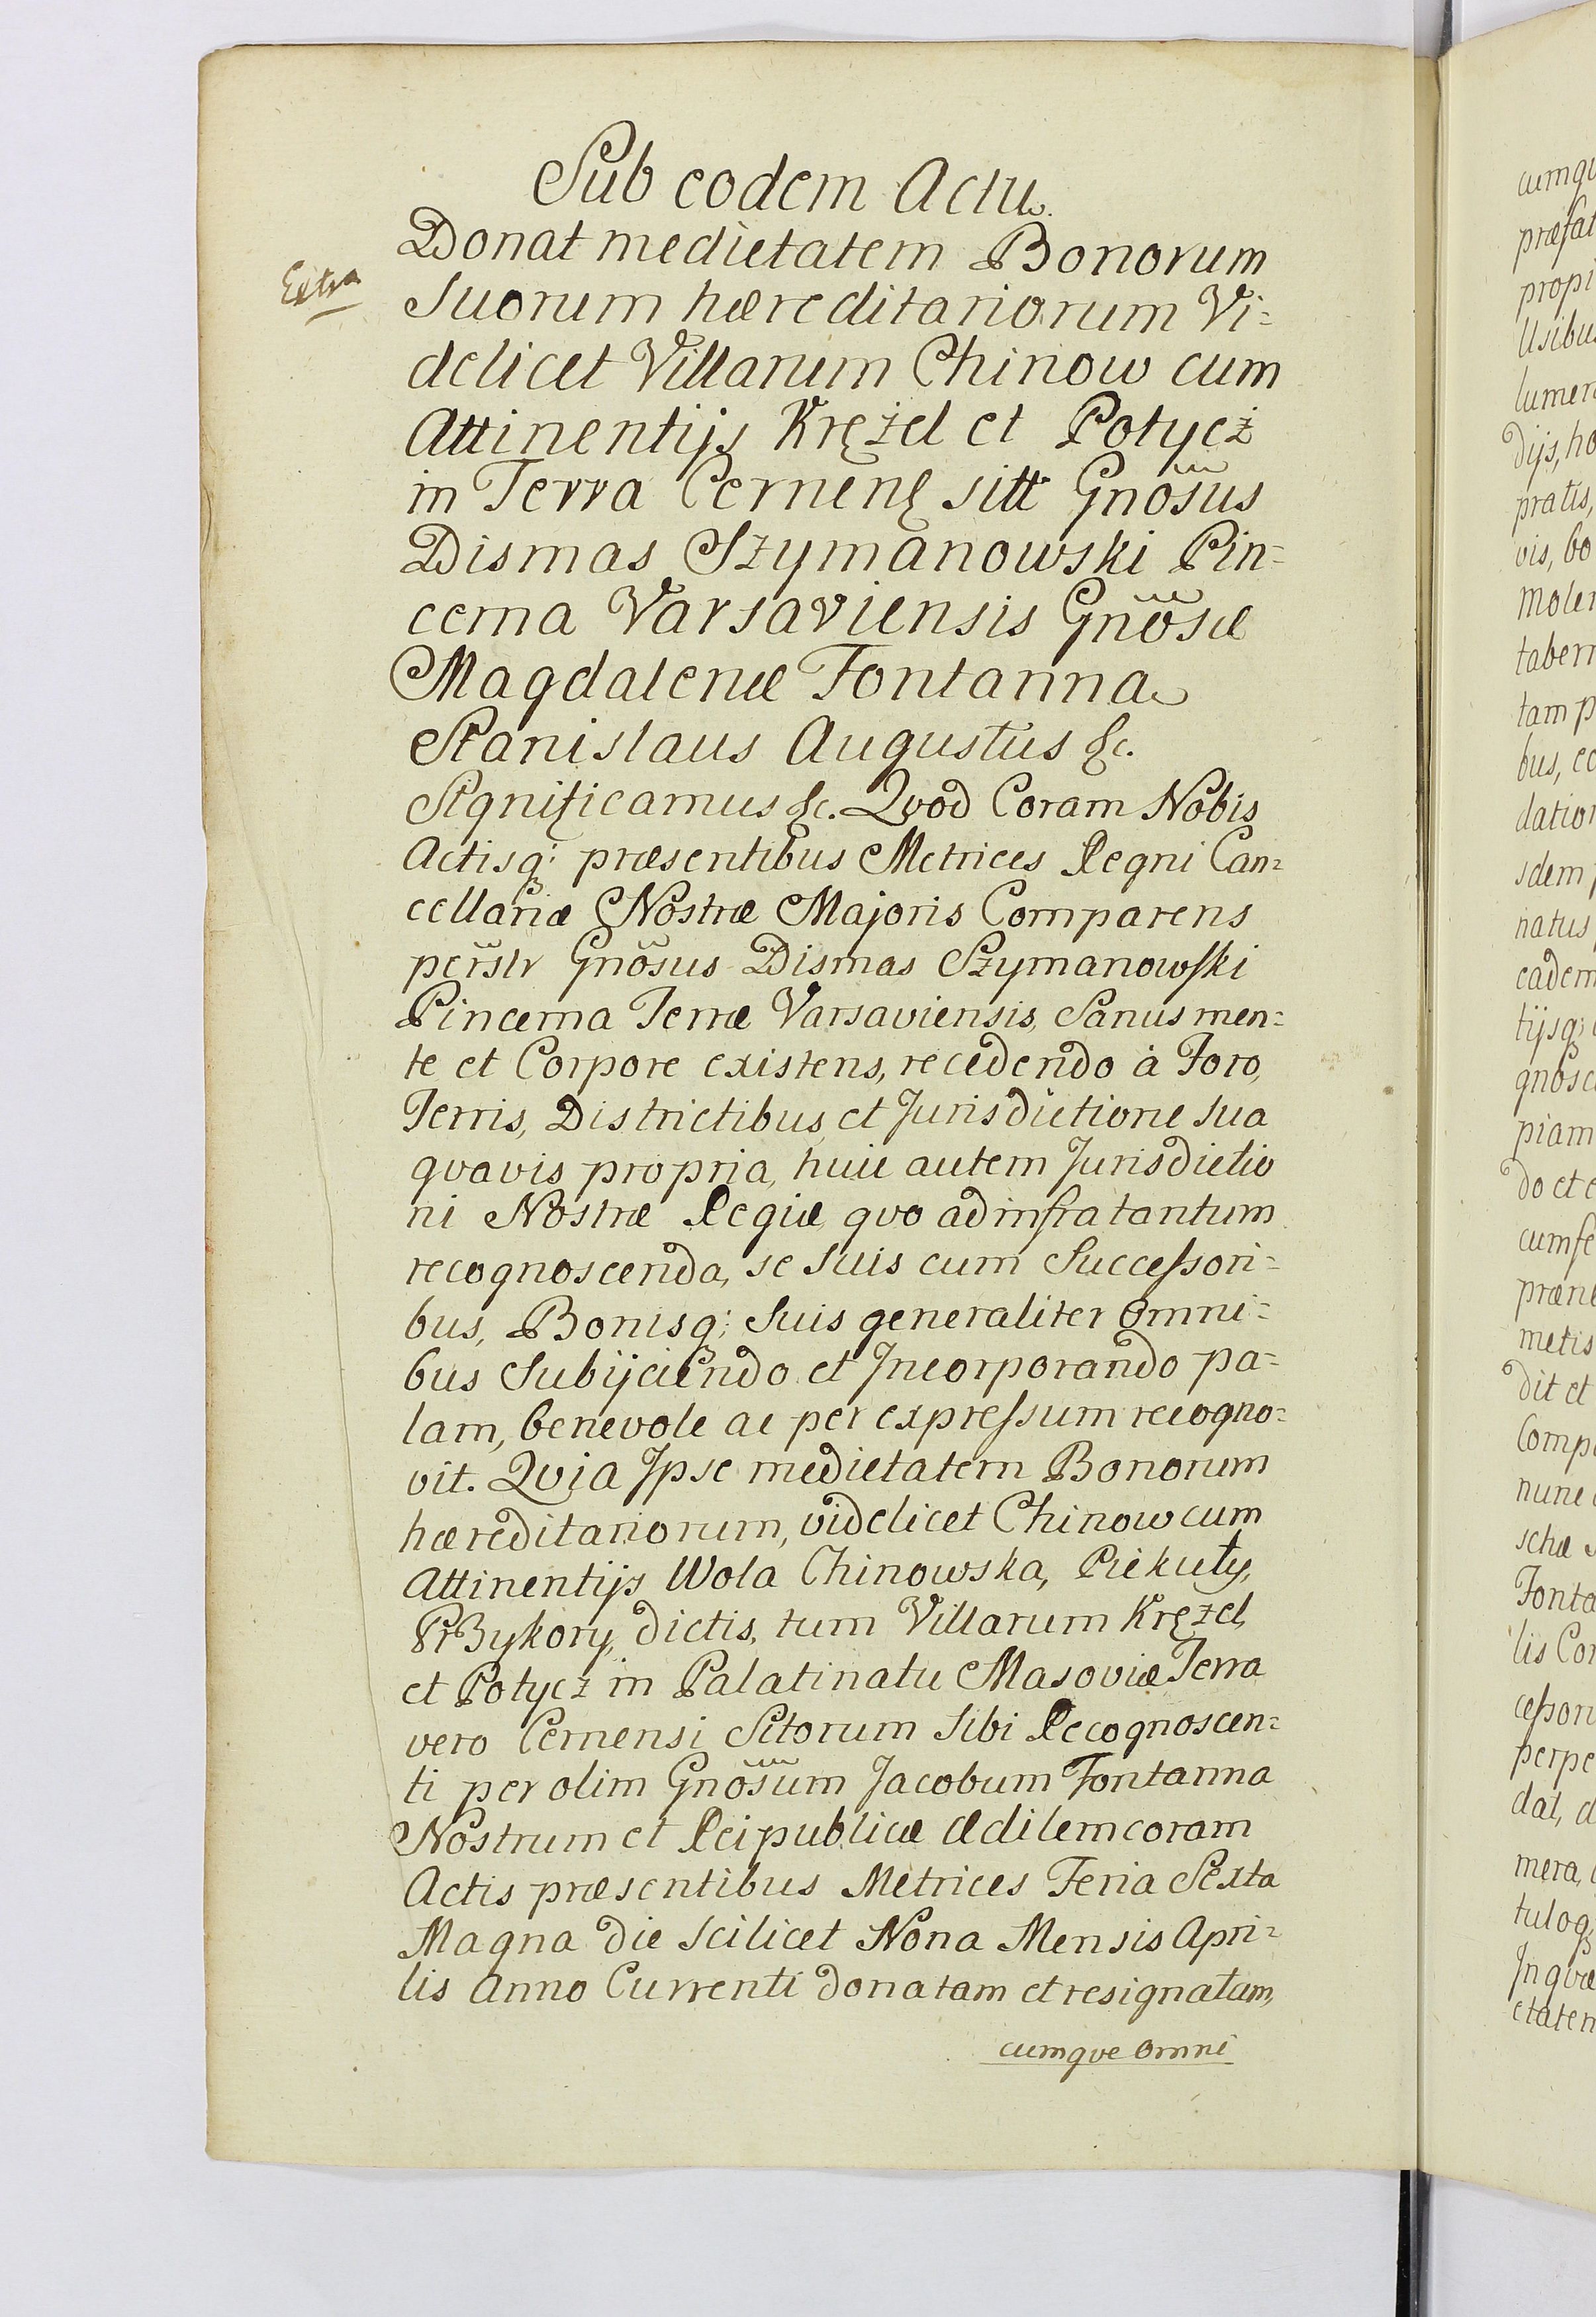 Sub eodem Actu.
Extra
Donat medietatem Bonorum
Suorum hæreditariorum Vi=
delicet Villarum Chinow cum
Attinentijs Krężel et Potycż
in Terra Cernenę sitt Gnõsus
Dismas Szymanowski Pin=
cerna Varsaviensis Gnõsæ
Magdalenæ Fontanna
Stanislaus Augustus &c.
Significamus &c. Qvod Coram Nobis
Actisq; præsentibus Metrices Regni Can=
cellariæ Nostræ Majoris Comparens
perslr Gnõsus Dismas Szymanowski
Pincerna Terræ Varsaviensis, Sanus men=
te et Corpore existens, recedendo à Foro,
Terris, Districtibus et Jurisdictione sua
qvavis propria, huic autem Jurisdictio
ni Nostræ Regiæ qvo ad infra tantum
recognoscenda, se suis cum Successori=
bus, Bonisq; Suis generaliter omni=
bus Subijciendo et Incorporando pa=
lam, benevole ac per expressum recogno=
vit. Qvia Ipse medietatem Bonorum
hæreditariorum, videlicet Chinow cum
Attinentijs Wola Chinowska, Piekuty,
Przykory, dictis, tum Villarum Krężel,
et Potycż in Palatinatu Masoviæ Terra
vero Cernensi Sitorum sibi Recognoscen=
ti per olim Gnõsum Jacobum Fontanna
Nostrum et Reipublicæ Ædilem coram
Actis præsentibus Metrices Feria Sexta
Magna die scilicet Nona Mensis Apri=
lis Anno Currenti donatam et resignatam,
cumqve omni
cumqv
præfat
propi
Usibus
lumen
dijs, ho
pratis,
vis, bo
Molen
tabern
tam p
bus, co
dation
sdem
natus
eadem
tijsq;
gnosc
piam
do et e
cumse
præne
metis
dit et
Comp
nunc
schæ
Fonta
lis Cor
cesson
perpe
dat, d
mera,
tuloq;
In qvæ
etatem